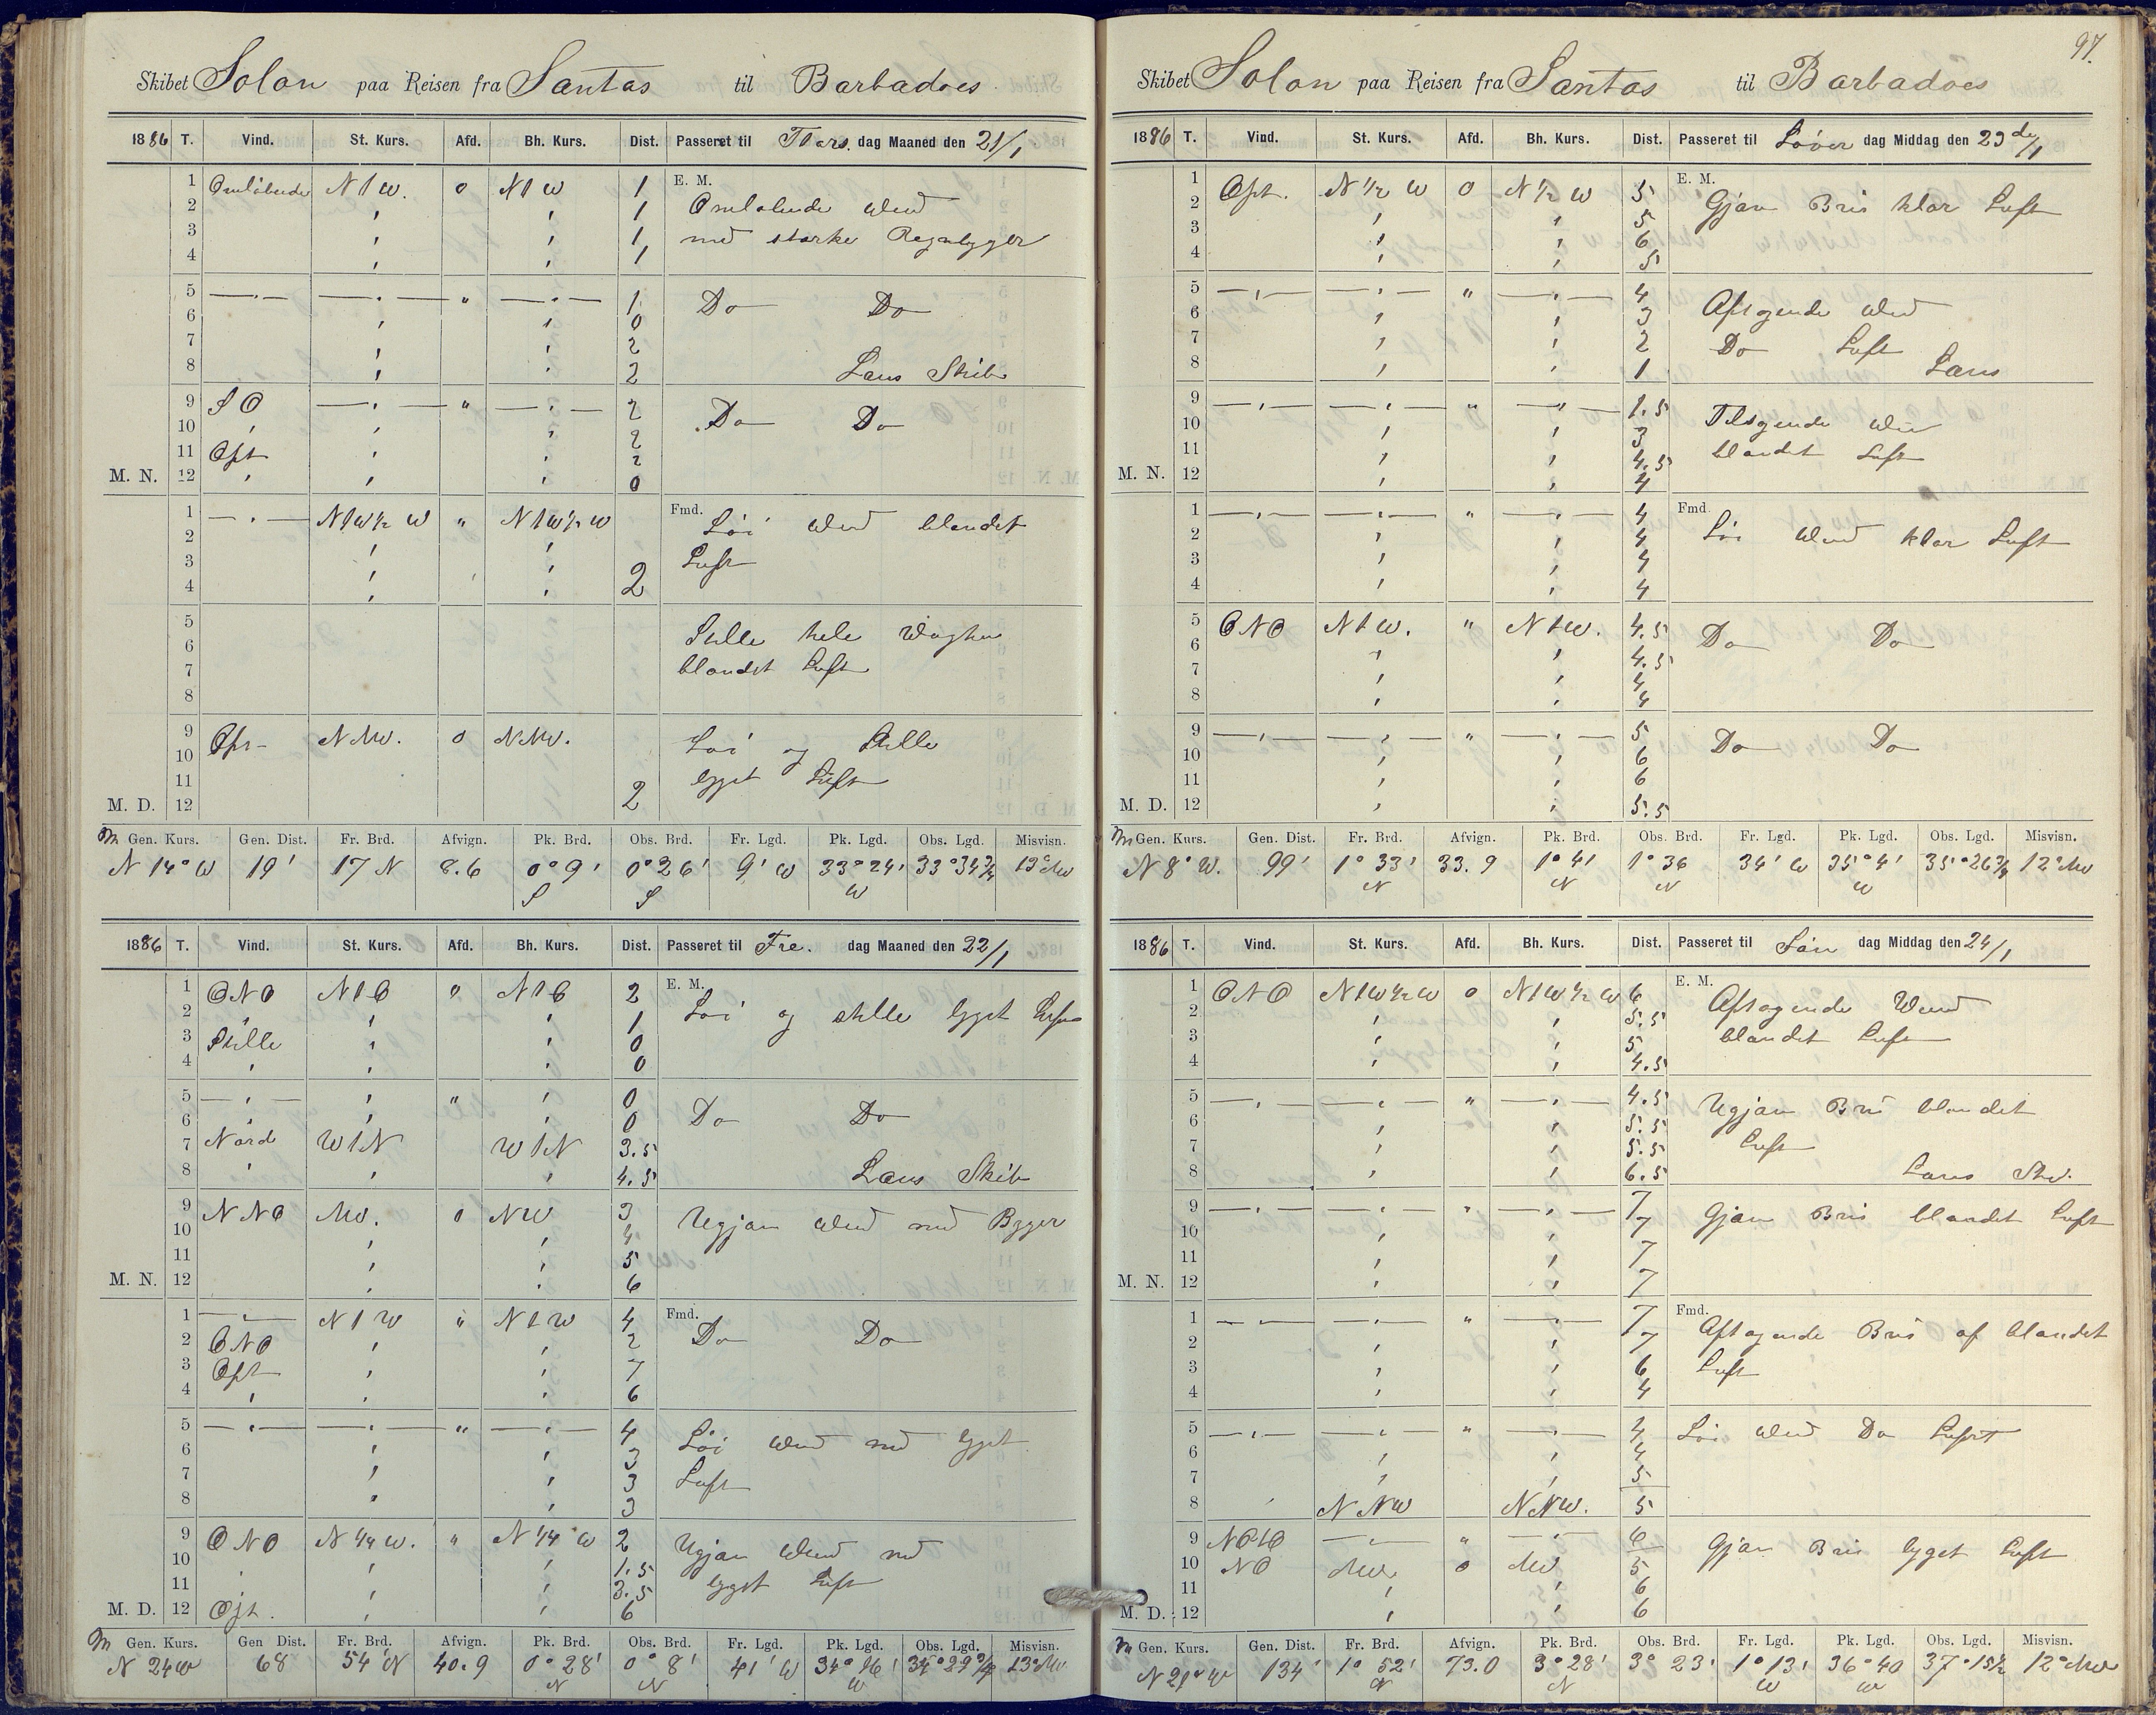 97.
Skibet Solon paa Reisen fra Santos til Barbadoes.
1886 T. Vind. St. Kurs. Afd. Bh. Kurs. Dist. Passeret til Thors. dag Maaned den 21/1
1 Omløbende N t W. 0 N t W 1 E. M.
2 " " 1 Omløbende Wind
3 " " 1 med stærke Regnbyger
4 " " 1
5 — " — — " — " — " — 1 Do Do
6 " " 0
7 " " 2
8 " " 2 Lans Skib
9 S O — " — " — " — 2 Do Do
10 " " " 2
11 Øst " " 2
M. N. 12 " " " 0
1 — " — N t W ½ W " N t W ½ W Fmd. Løi Wind blandet
2 " " Luft
3 " "
4 " " 2
5 Stille hele Wagten
6 blandet Luft
7
8
9 Øst NNW. 0 NNW. Løi og Stille
10 bygget Luft
11
M. D. 12 2
M Gen. Kurs. Gen. Dist. Fr. Brd. Afvign. Pk. Brd. Obs. Brd. Fr. Lgd. Pk. Lgd. Obs. Lgd. Misvisn.
N 14° W 19' 17 N 8.6 0° 9' S 0° 26' S 9' W 33° 24' W 33° 34¾ 13° NW
1886 T. Vind. St. Kurs. Afd. Bh. Kurs. Dist. Passeret til Fre. dag Maaned den 22/1
1 ONO N t O 0 N t O 2 E. M.
2 " " " 1 Løi og stille bygget Luft
3 Stille " " 0
4 " " " 0
5 — " — " " " 0
6 " " 0 Do Do
7 Nord W t N W t N 3.5
8 " " " 4.5 Lans Skib
9 NNO NW. 0 NW 3 Ugjan Wind med Byger
10 " " 4
11 " " 5
M. N. 12 " " 6
1 — " — N t W " N t W 4 Fmd. Do Do
2 ONO " " 2
3 Øst " " 7
4 " " " 6
5 — " — — " — " — " — 4 Løi Wind med bygget
6 " " 3 Luft
7 " " 3
8 " " 3
9 ONO N ¼ W. " N ¼ W 2 Ugjan Wind med
10 " " " 1.5 bygget Luft
11 " " 3.5
M. D. 12 Øst. " " 6
M Gen. Kurs. Gen Dist. Fr. Brd. Afvign. Pk. Brd. Obs. Brd. Fr. Lgd. Pk. Lgd. Obs. Lgd. Misvisn.
N 24 W 68 54' N 40.9 0° 28' N 0° 8' N 41' W 34° 16' W 34° 29¾ 13° NW
Skibet Solon paa Reisen fra Santos til Barbadoes
1886 T. Vind. St. Kurs. Afd. Bh. Kurs. Dist. Passeret til Løver dag Middag den 23 de/1
1 Øst. N ½ W 0 N ½ W 5 E. M.
2 " " 5 Gjan Bris klar Luft
3 " " 6
4 " " 5
5 — " — — " — " — " — 4 Aftagende Wind
6 " " 3 Do Luft
7 " " 2
8 " " 1 Lans
9 — " — — " — " — " — 1.5 Tiltagende Wind
10 " " 3 blandet Luft
11 " " 4.5
M. N. 12 " " 4
1 — " — — " — " — " — 4 Fmd.
2 " " 4 Løi Wind klar Luft
3 " " 4
4 " " 4
5 ONO N t W. " N t W. 4.5 Do Do
6 " " 4.5
7 " " 4
8 " " 4
9 — " — — " — " — " — 5 Do Do
10 " " 6
11 " " 6
M. D. 12 " " 5.5
M Gen. Kurs. Gen. Dist. Fr. Brd. Afvign. Pk. Brd. Obs. Brd. Fr. Lgd. Pk. Lgd. Obs. Lgd. Misvisn.
N 8° W. 99' 1° 33' N 33.9 1° 41 N 1° 36 N 34' W 35° 4' W 35° 26¾ 12° NW
1886 T. Vind. St. Kurs. Afd. Bh. Kurs. Dist. Passeret til Søn dag Middag den 24/1
1 ONO N t W ½ W 0 N t W ½ W 6 E. M.
2 " " 5.5 Aftagende Wind
3 " " 5 blandet Luft
4 " " 4.5
5 — " — — " — " — " — 4.5 Ugjan Bris blandet
6 " " 5.5 Luft
7 " " 5.5
8 " " 6.5 Lans Sk.
9 — " — — " — " — " — 7 Gjan Bris blandet Luft
10 " " 7
11 " " 7
M. N. 12 " " 7
1 — " — — " — " — " — 7 Fmd.
2 " " 7 Aftagende Bris af blandet
3 " " 6 Luft
4 " " 4
5 — " — — " — " — " — 4 Løi Wind Do Luft
6 " " 4
7 " " 5
8 " NNW NNW. 5
9 NOtO — " — " — " — 6 Gjan Bris bygget Luft
10 NO NW 0 NW 5
11 " " 6
M. D. 12 " " 6
M Gen. Kurs. Gen. Dist. Fr. Brd. Afvign. Pk. Brd. Obs. Brd. Fr. Lgd. Pk. Lgd. Obs. Lgd. Misvisn.
N 29° W 134' 1° 52' N 73.0 3° 28' N 3° 23' 1° 13' W 36° 40 W 37° 15½ 12° NW